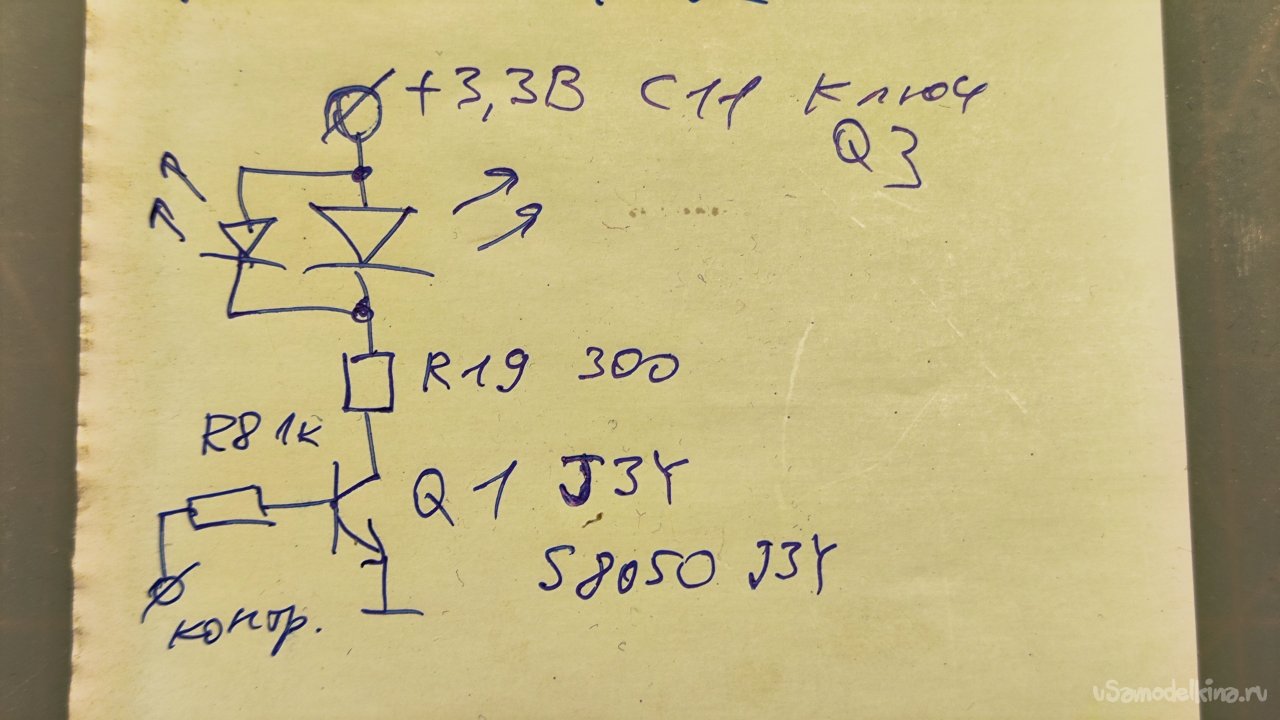 +3,3В С11 ключ
Q3
R19 300
R8 1к
Q1 J3Y
S8050 J3Y
контр.
uSamodelkina.ru